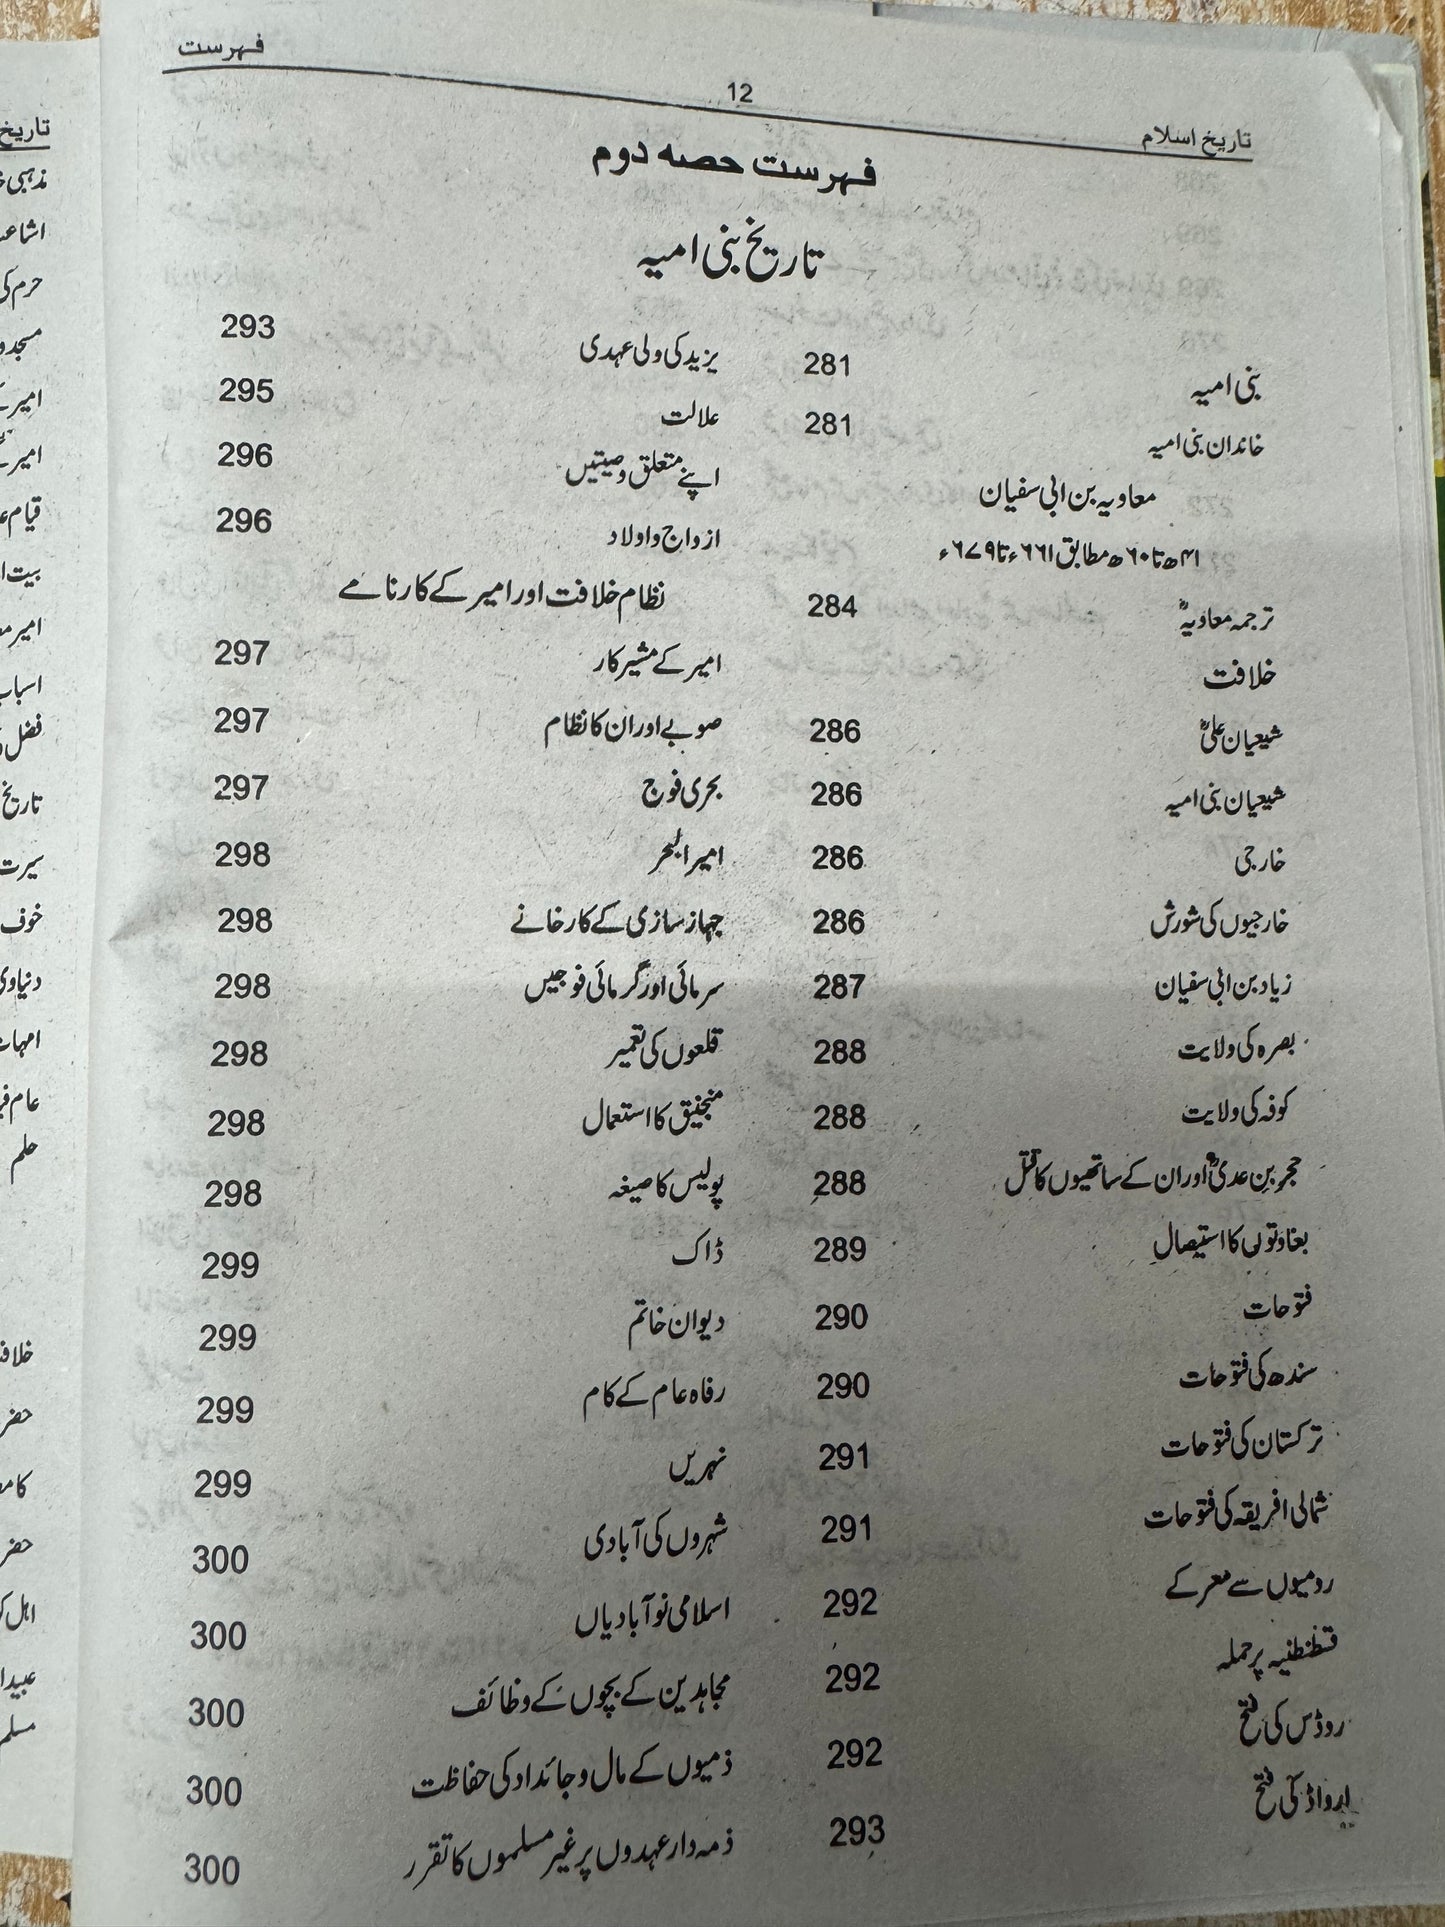 تاریخ اسلام
12
فہرست
فہرست حصہ دوم
تاریخ بنی امیہ
بنی امیہ 281
خاندان بنی امیہ 281
معاویہ بن ابی سفیان
۴۱ھ تا ۶۰ھ مطابق ۶۶۱ء تا ۶۷۹ء
ترجمہ معاویہؓ 284
خلافت
شیعیان علیؓ 286
شیعیان بنی امیہ 286
خارجی 286
خارجیوں کی شورش 286
زیاد بن ابی سفیان 287
بصرہ کی ولایت 288
کوفہ کی ولایت 288
حجر بن عدیؓ اور ان کے ساتھیوں کا قتل 288
بغاوتوں کا استیصال 289
فتوحات 290
سندھ کی فتوحات 290
ترکستان کی فتوحات 291
شمالی افریقہ کی فتوحات 291
رومیوں سے معرکے 292
قسطنطنیہ پر حملہ 292
روڈس کی فتح 292
ارواڈ کی فتح 293
یزید کی ولی عہدی 293
علالت 295
اپنے متعلق وصیتیں 296
ازواج و اولاد 296
نظام خلافت اور امیر کے کارنامے
امیر کے مشیر کار 297
صوبے اور ان کا نظام 297
بحری فوج 297
امیر البحر 298
جہاز سازی کے کارخانے 298
سرمائی اور گرمائی فوجیں 298
قلعوں کی تعمیر 298
منجنیق کا استعمال 298
پولیس کا صیغہ 298
ڈاک 299
دیوان خاتم 299
رفاہ عام کے کام 299
نہریں 299
شہروں کی آبادی 300
اسلامی نوآبادیاں 300
مجاہدین کے بچوں کے وظائف 300
ذمیوں کے مال و جائداد کی حفاظت 300
ذمہ دار عہدوں پر غیر مسلموں کا تقرر 300
تاریخ
مذہبی
حرم کی
امیر
امیر
قیام
اسباب
فضل
تاریخ
سیرت
خوف
عام
حلم
اہل